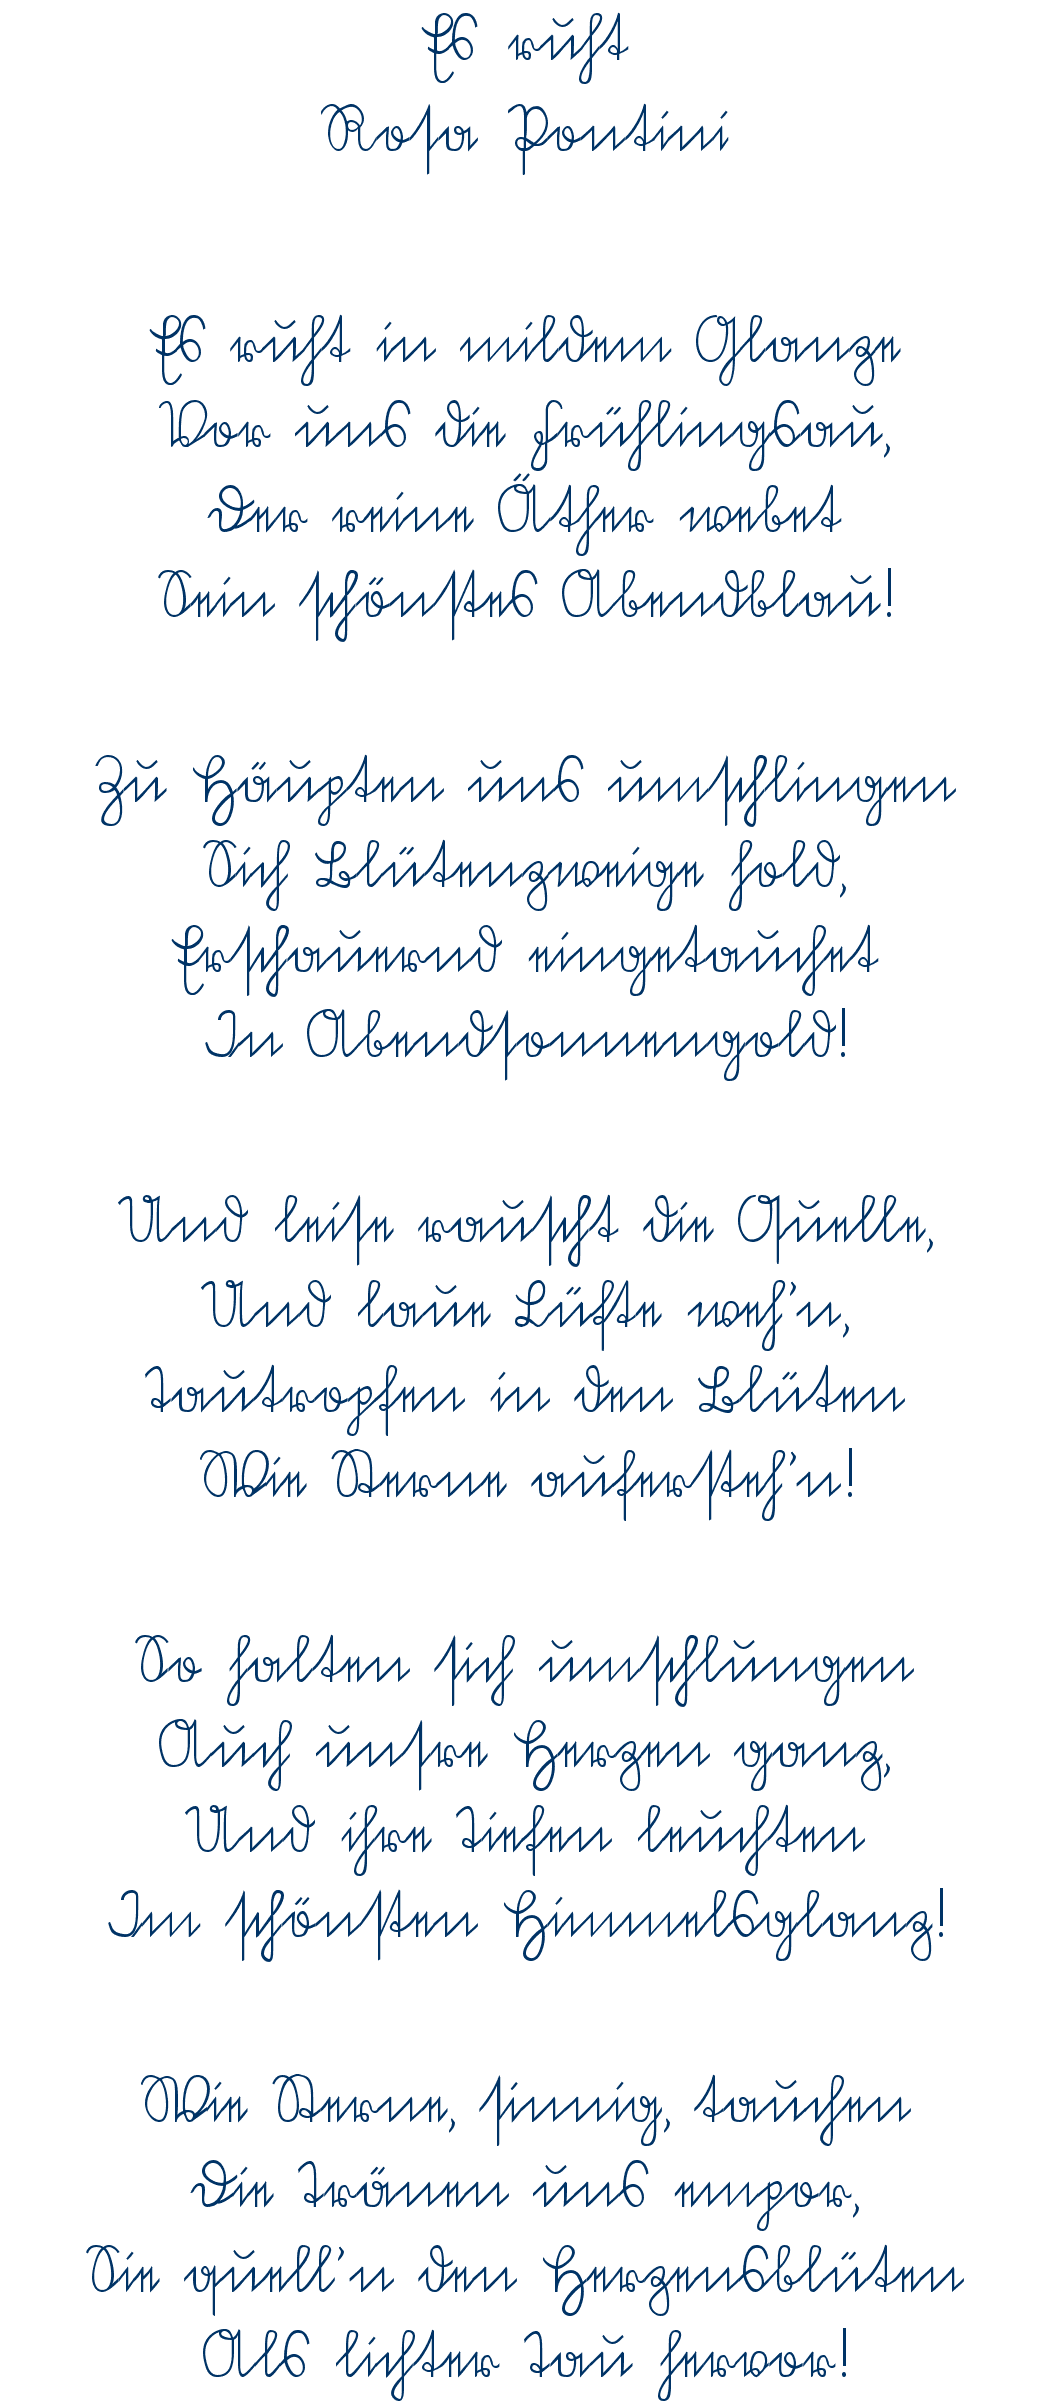 Es ruht
Rosa Pontini
Es ruht in mildem Glanze
Vor uns die Frühlingsau,
Der reine Äther webet
Sein schönstes Abendblau!
Zu Häupten uns umschlingen
Sich Blütenzweige hold,
Erschauernd eingetauchet
In Abendsonnengold!
Und leise rauscht die Quelle,
Und laue Lüfte weh'n,
Tautropfen in den Blüten
Wie Sterne aufersteh'n!
So halten sich umschlungen
Auch unsre Herzen ganz,
Und ihre Tiefen leuchten
Im schönsten Himmelsglanz!
Wie Sterne, sinnig, tauchen
Die Tränen uns empor,
Sie quell'n den Herzensblüten
Als lichter Tau hervor!